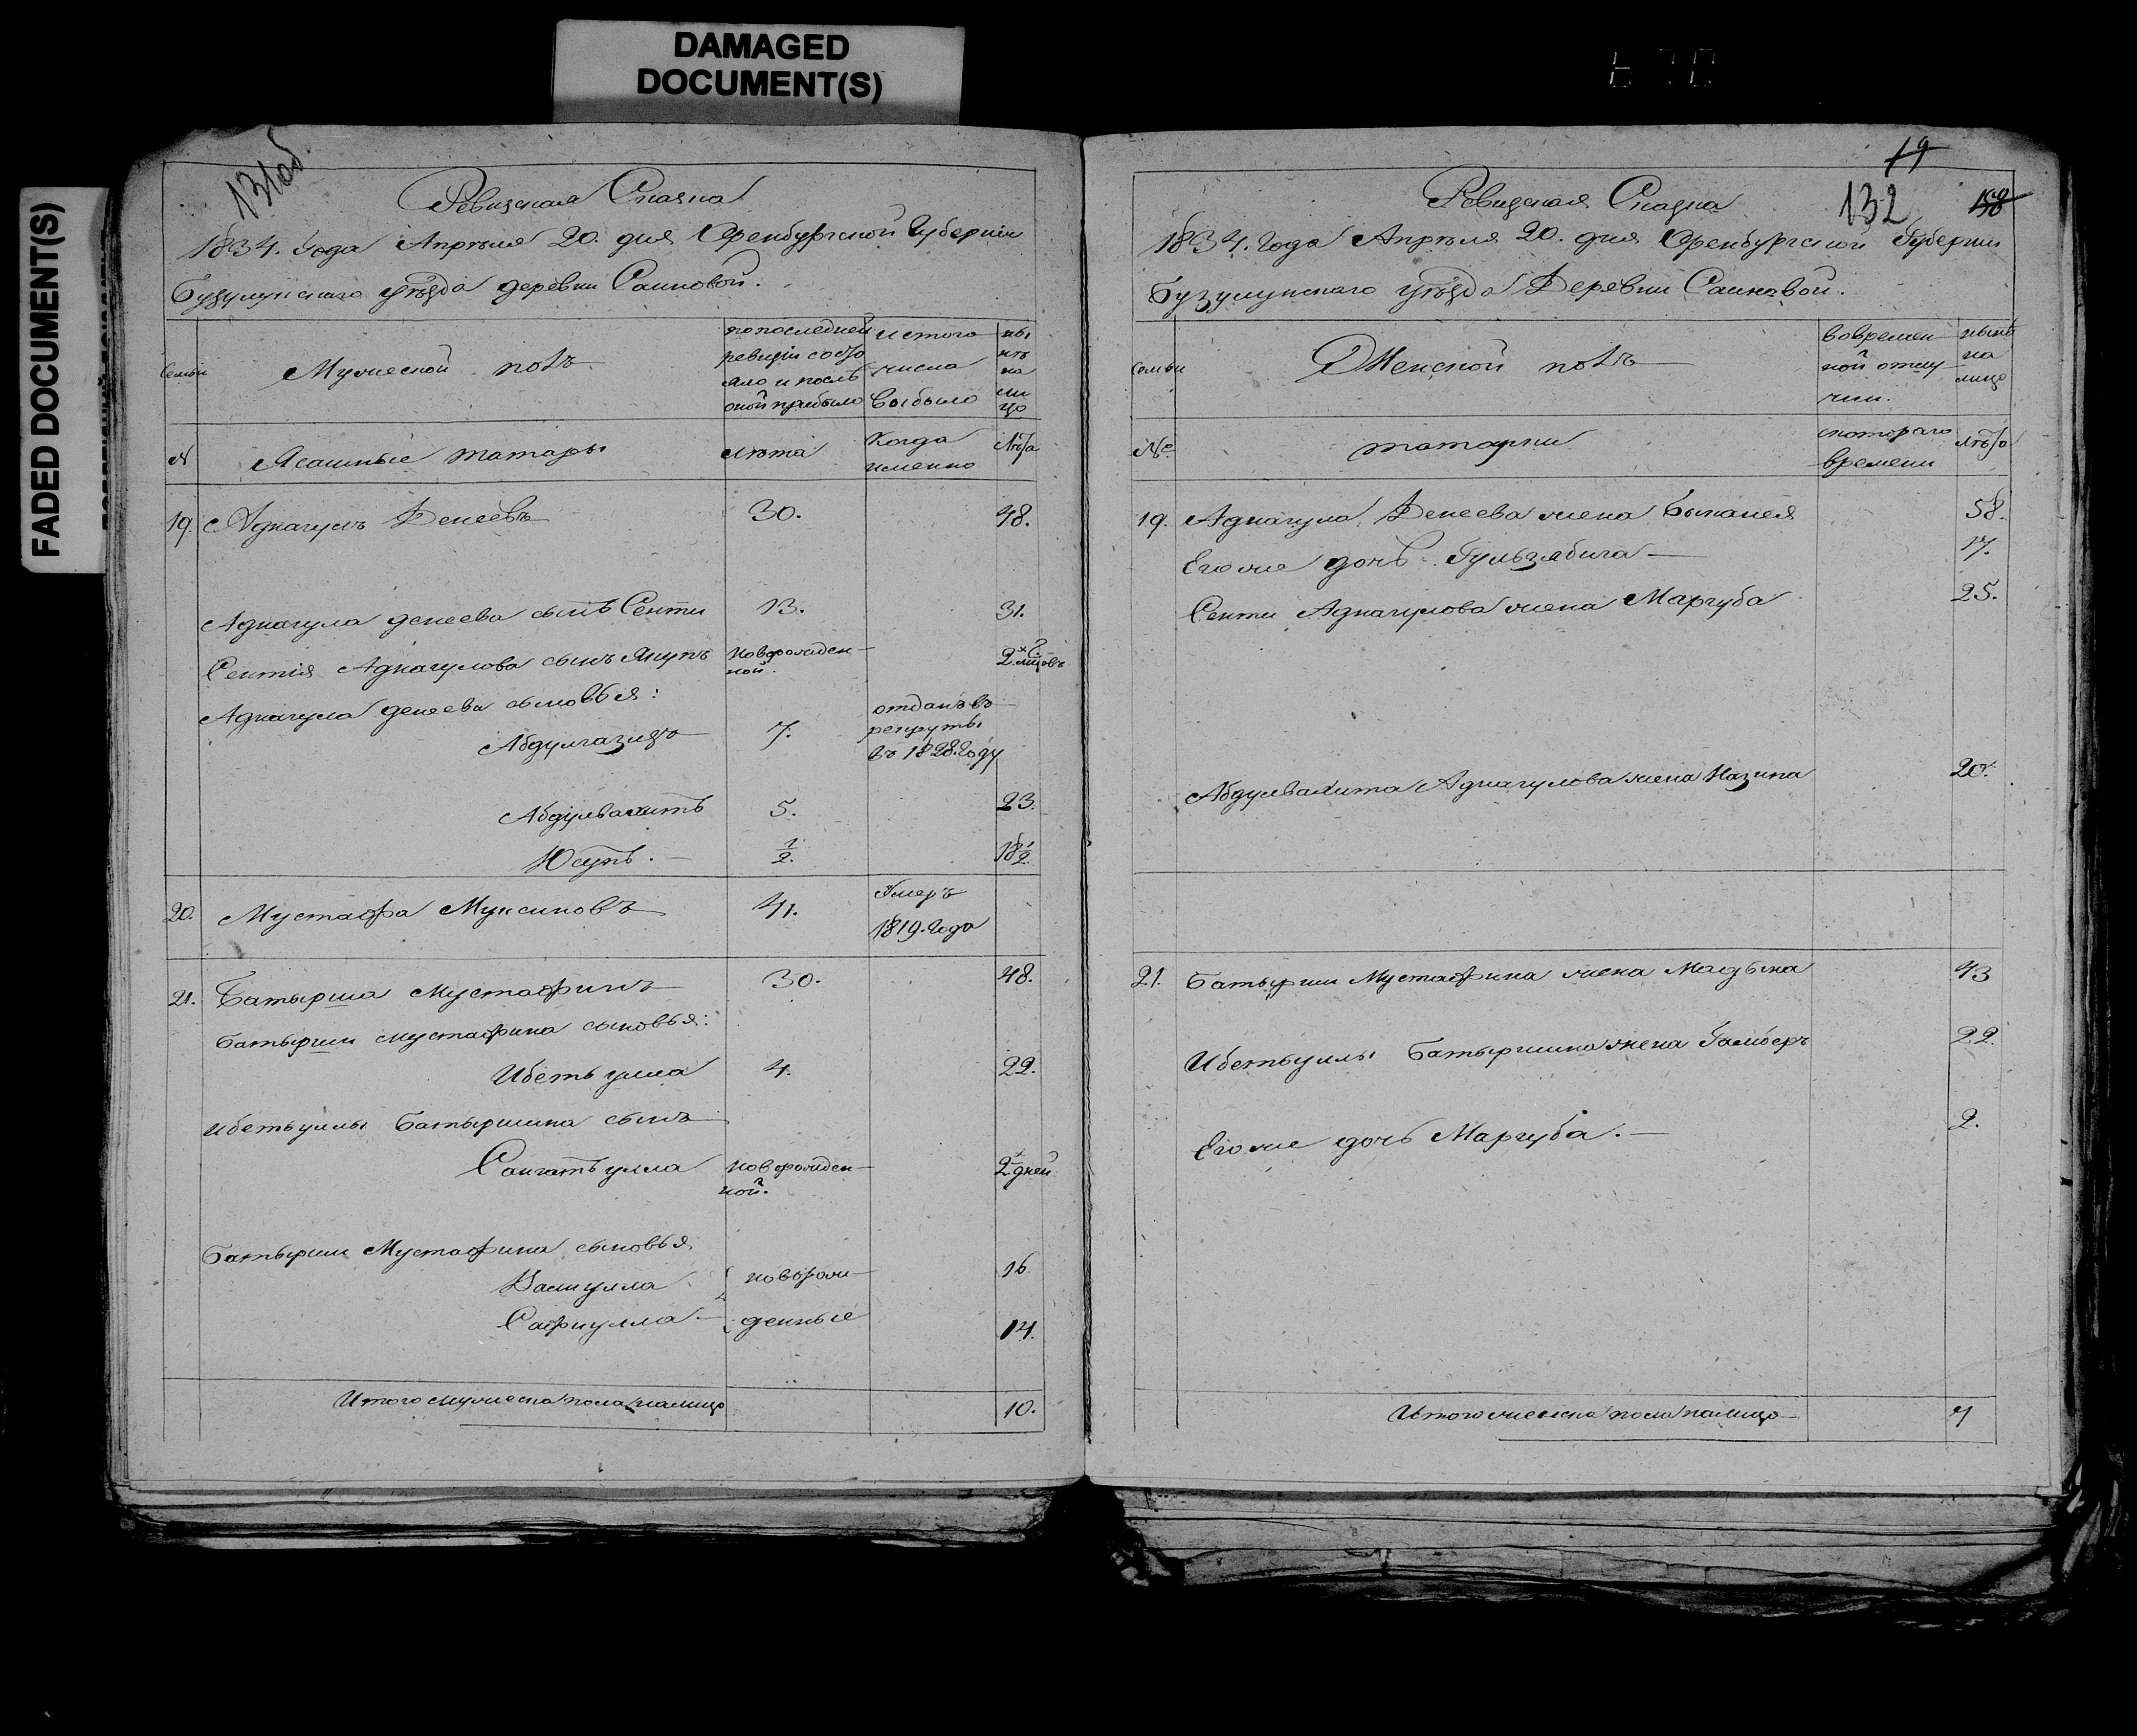 DAMAGED
DOCUMENT(S)
FADED DOCUMENT(S)
131об
Ревизская Сказка
1834. Года Апрѣля 20. дня Оренбургской Губерніи
Бузулукскаго уѣзда деревни Саиновой.
Семьи
Мужеской полъ
по последней
ревизіи состо
яло и послѣ
оной прибыло
и стого
числа
выбыло
ны
нѣ
на
ли
цо
N
Ясашные татары
лѣта
Когда
именно
Лѣта
19. Аднагулъ Денеевъ 30. 48.
Аднагула денеева сынъ Сенти 13. 31.
Сентия Аднагулова сынъ Якупъ новорожден-
ной.
2
Аднагула денеева сыновья:
Абдулгазизъ 7. отданъ въ
рекруты
въ 1828. Году
Абдулвахитъ 5. 23.
Юсупъ. 1/2. 18 1/2.
20. Мустафа Муксиновъ 41. Умеръ
1819. Года
21. Батырша Мустафинъ 30. 48.
Батырши мустафина сыновья:
Ибетьулла 4. 22.
ибетьуллы Батыршина сынъ
Сангатьулла новорожден-
ной.
2 дней
Батырши Мустафина сыновья
Валиулла новорож- 16
Сафиулла денные 14.
Итого мужеска пола налицо 10.
19
132
158
Ревизская Сказка
1834. Года Апрѣля 20. дня Оренбургской Губерніи
Бузулукскаго уѣзда Деревни Саиновой.
семьи
Женской полъ
во времен
ной отлу
чки.
нынѣ
на
лицо
№
татарки
скотораго
времени
лѣта
19. Аднагула Денеева жена Быканея 58.
Его же дочь Гульзябига 17.
Сенти Аднагулова жена Маргуба 25.
Абдулвахита Аднагулова жена Назипа 20.
21. Батырши Мустафина жена Мадына 43
Ибетьуллы Батыршина жена Гамберъ 22.
Его же дочь Маргуба. 2.
Итого женска пола налицо 7